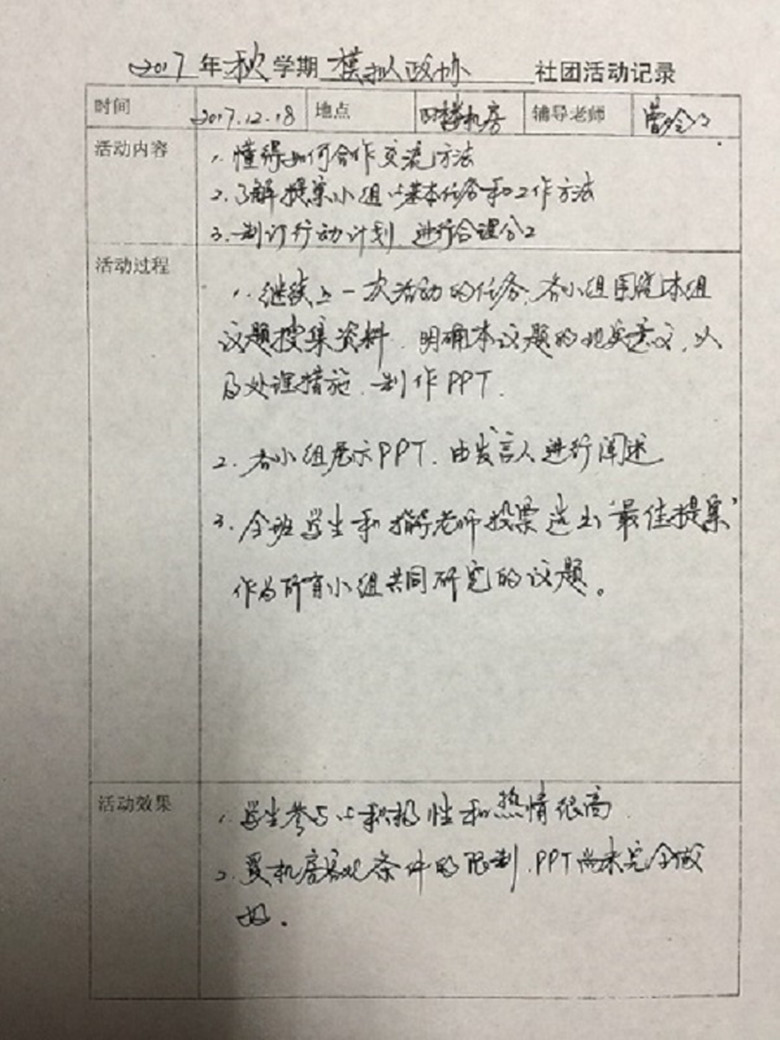 2017年秋学期模拟政协 社团活动记录
时间 2017.12.18 地点 四楼机房 辅导老师 曾
活动内容 1. 懂得如何合作交流方法
2. 了解提案小组的基本任务和工作方法
3. 制订行动计划 进行合理分工
活动过程 1. 继续上一次活动的任务,各小组围绕本组
议题搜集资料,明确本议题的现实意义,以
及处理措施,制作PPT.
2. 各小组展示PPT,由发言人进行阐述
3. 全班学生和指导老师投票选出"最佳提案"
作为所有小组共同研究的议题。
活动效果 1. 学生参与的积极性和热情很高
2. 受机房客观条件的限制,PPT尚未完全做
好。